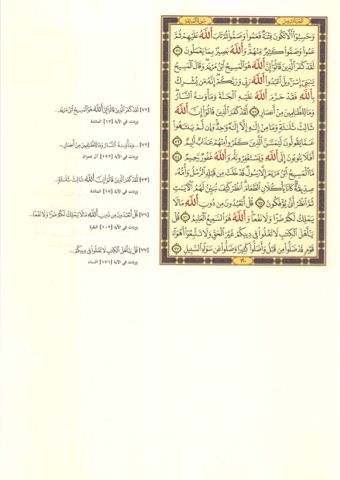 وَحَسِبُوٓا۟ أَلَّا تَكُونَ فِتْنَةٌ فَعَمُوا۟ وَصَمُّوا۟ ثُمَّ تَابَ ٱللَّهُ عَلَيْهِمْ ثُمَّ
عَمُوا۟ وَصَمُّوا۟ كَثِيرٌ مِّنْهُمْ ۚ وَٱللَّهُ بَصِيرٌۢ بِمَا يَعْمَلُونَ ٧١
لَقَدْ كَفَرَ ٱلَّذِينَ قَالُوٓا۟ إِنَّ ٱللَّهَ هُوَ ٱلْمَسِيحُ ٱبْنُ مَرْيَمَ ۖ وَقَالَ ٱلْمَسِيحُ
يَـٰبَنِىٓ إِسْرَٰٓءِيلَ ٱعْبُدُوا۟ ٱللَّهَ رَبِّى وَرَبَّكُمْ ۖ إِنَّهُۥ مَن يُشْرِكْ
بِٱللَّهِ فَقَدْ حَرَّمَ ٱللَّهُ عَلَيْهِ ٱلْجَنَّةَ وَمَأْوَىٰهُ ٱلنَّارُ ۖ
وَمَا لِلظَّـٰلِمِينَ مِنْ أَنصَارٍ ٧٢ لَّقَدْ كَفَرَ ٱلَّذِينَ قَالُوٓا۟ إِنَّ ٱللَّهَ
ثَالِثُ ثَلَـٰثَةٍ ۘ وَمَا مِنْ إِلَـٰهٍ إِلَّآ إِلَـٰهٌ وَٰحِدٌ ۚ وَإِن لَّمْ يَنتَهُوا۟
عَمَّا يَقُولُونَ لَيَمَسَّنَّ ٱلَّذِينَ كَفَرُوا۟ مِنْهُمْ عَذَابٌ أَلِيمٌ ٧٣
أَفَلَا يَتُوبُونَ إِلَى ٱللَّهِ وَيَسْتَغْفِرُونَهُۥ ۚ وَٱللَّهُ غَفُورٌ رَّحِيمٌ ٧٤
مَّا ٱلْمَسِيحُ ٱبْنُ مَرْيَمَ إِلَّا رَسُولٌ قَدْ خَلَتْ مِن قَبْلِهِ ٱلرُّسُلُ وَأُمُّهُۥ
صِدِّيقَةٌ ۖ كَانَا يَأْكُلَانِ ٱلطَّعَامَ ۗ ٱنظُرْ كَيْفَ نُبَيِّنُ لَهُمُ ٱلْـَٔايَـٰتِ
ثُمَّ ٱنظُرْ أَنَّىٰ يُؤْفَكُونَ ٧٥ قُلْ أَتَعْبُدُونَ مِن دُونِ ٱللَّهِ مَا لَا
يَمْلِكُ لَكُمْ ضَرًّا وَلَا نَفْعًا ۚ وَٱللَّهُ هُوَ ٱلسَّمِيعُ ٱلْعَلِيمُ ٧٦ قُلْ
يَـٰٓأَهْلَ ٱلْكِتَـٰبِ لَا تَغْلُوا۟ فِى دِينِكُمْ غَيْرَ ٱلْحَقِّ وَلَا تَتَّبِعُوٓا۟ أَهْوَآءَ
قَوْمٍ قَدْ ضَلُّوا۟ مِن قَبْلُ وَأَضَلُّوا۟ كَثِيرًا وَضَلُّوا۟ عَن سَوَآءِ ٱلسَّبِيلِ ٧٧
١٢٠
[٧٢] لَقَدْ كَفَرَ ٱلَّذِينَ قَالُوٓا۟ إِنَّ ٱللَّهَ هُوَ ٱلْمَسِيحُ ٱبْنُ مَرْيَمَ...
وردت في الآية [١٧] المائدة
[٧٢] ...وَمَأْوَىٰهُ ٱلنَّارُ وَمَا لِلظَّـٰلِمِينَ مِنْ أَنصَارٍ...
وردت في الآية [١٩٢] آل عمران
[٧٣] لَّقَدْ كَفَرَ ٱلَّذِينَ قَالُوٓا۟ إِنَّ ٱللَّهَ ثَالِثُ ثَلَـٰثَةٍ...
وردت في الآية [١٧] المائدة
[٧٦] قُلْ أَتَعْبُدُونَ مِن دُونِ ٱللَّهِ مَا لَا يَمْلِكُ لَكُمْ ضَرًّا وَلَا نَفْعًا...
وردت في الآية [١٠٢] البقرة
[٧٧] قُلْ يَـٰٓأَهْلَ ٱلْكِتَـٰبِ لَا تَغْلُوا۟ فِى دِينِكُمْ...
وردت في الآية [١٧١] النساء